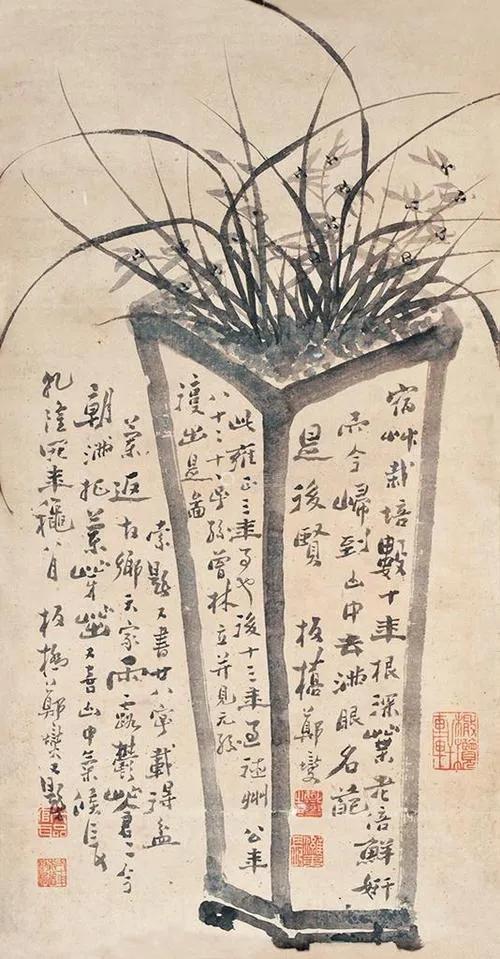 宿艸栽培數十年根深葉老倍鮮妍
而今歸到山中去滿眼名葩
是後賢 板橋鄭燮
此雍正三年事也後十三年過 州公年
八十 孫曾林立并見元孫
復出是圖
索題又書廿八字載得盆
蘭返故鄉天家雨露鬱 今
朝滿把蘭芽茁又喜山中氣候長
乾隆 年龝八月 板橋鄭燮又題